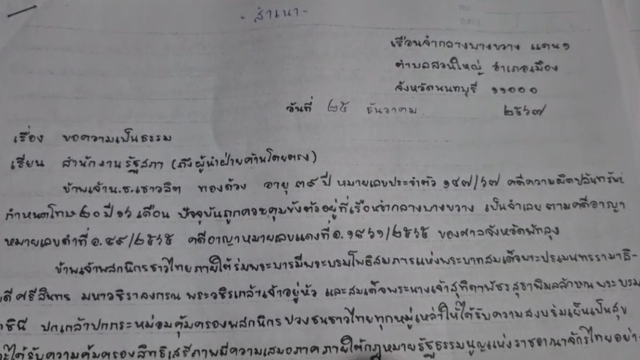 - สำเนา -
เรือนจำกลางบางขวาง แดน ๑
ตำบลสวนใหญ่ อำเภอเมือง
จังหวัดนนทบุรี ๑๑๐๐๐
วันที่ ๒๕ ธันวาคม ๒๕๖๗
เรื่อง ขอความเป็นธรรม
เรียน สำนักงานรัฐสภา (ถึงผู้นำฝ่ายค้านโดยตรง)
ข้าพเจ้า น.ช.เชาวลิต ทองด้วง อายุ ๓๙ ปี หมายเลขประจำตัว ๑๔๗/๖๗ คดีความผิดปล้นทรัพย์
กำหนดโทษ ๒๐ ปี ๑๖ เดือน ปัจจุบันถูกควบคุมขังตัวอยู่ที่เรือนจำกลางบางขวาง เป็นจำเลยตามคดีอาญา
หมายเลขดำที่ อ.๔๙/๒๕๖๕ คดีอาญาหมายเลขแดงที่ อ.๑๘๖๑/๒๕๖๕ ของศาลจังหวัดพัทลุง
ข้าพเจ้าพสกนิกรชาวไทยภายใต้ร่มพระบารมีพระบรมโพธิสมภารแห่งพระบาทสมเด็จพระปรเมนทรรามาธิ-
บดีศรีสินทร มหาวชิราลงกรณ พระวชิรเกล้าเจ้าอยู่หัว และสมเด็จพระนางเจ้าสุทิดาพัชรสุธาพิมลลักษณ พระบรม
ราชินี ปกเกล้าปกกระหม่อมคุ้มครองพสกนิกร ปวงชนชาวไทยทุกหมู่เหล่าให้ได้รับความสงบร่มเย็นเป็นสุข
ได้รับความคุ้มครองสิทธิเสรีภาพมีความเสมอภาค ภายใต้กฎหมายรัฐธรรมนูญแห่งราชอาณาจักรไทยอย่า